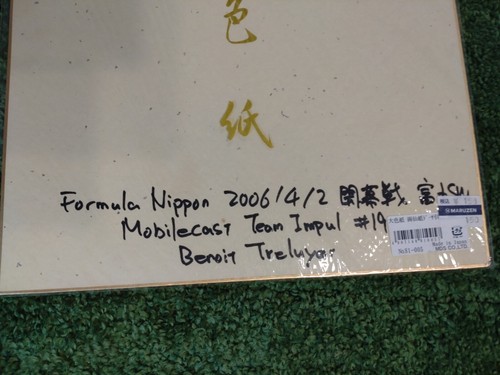 色
紙
Formula Nippon 2006/4/2 開幕戦 富士SW
Mobilecast Team Impul #19
Benoit Treluyer
MARUZEN
Made in Japan